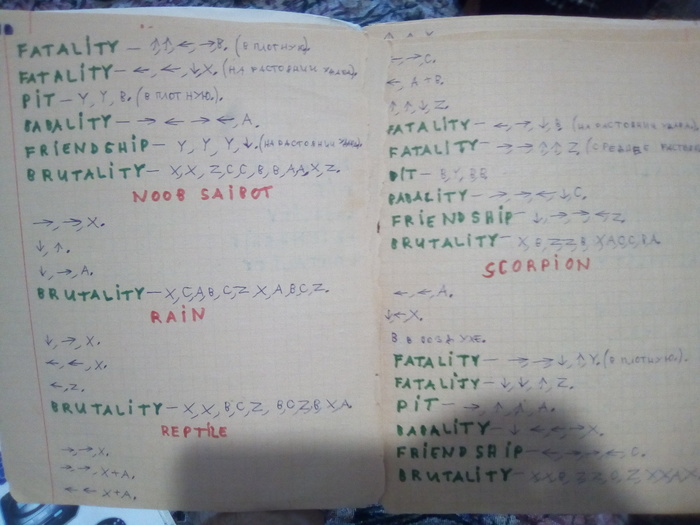 FATALITY – ↑↑ ←, → B. (В ПЛОТНУЮ).
FATALITY – ←, ←, ↓, X. (НА РАСТОЯНИИ УДАРА).
PIT – Y, Y, B. (В ПЛОТНУЮ).
BABALITY – → ← → ←, A.
FRIENDSHIP – Y, Y, Y, ↓. (НА РАСТОЯНИИ
BRUTALITY – X, X, Z, C, C, B, B, A, A, X, Z.
NOOB SAIBOT
→, →, X.
↓, ↑.
↓, →, A.
BRUTALITY – X, C, A, B, C, Z X, A, B, C, Z.
RAIN
↓, →, X.
←, ←, X.
←, Z.
BRUTALITY – X, X, B, C, Z, B, C, Z, B, X, A.
REPTILE
→, →, X.
→, →, X+A.
← ← X+A.
←, →, C.
←, A+B.
↑, ↑, ↓, Z.
FATALITY – ←, →, ↓, B (НА РАСТОЯНИИ
FATALITY – → → ↑ ↑ Z (СРЕДНЕЕ
PIT – B, Y, B, B.
BABALITY – → → ← ↓ C.
FRIENDSHIP – ↓, → → ← Z.
BRUTALITY –
SCORPION
←, ←, A.
↓ ← X.
B В ВОЗДУХЕ.
FATALITY – → → ↓, ↑ Y. (В ПЛОТНУЮ).
FATALITY – ↓ ↓ ↑, Z.
PIT – →, ↑, ↑, A.
BABALITY – ↓ ← ← → X.
FRIENDSHIP – ← → → ←, C.
BRUTALITY –